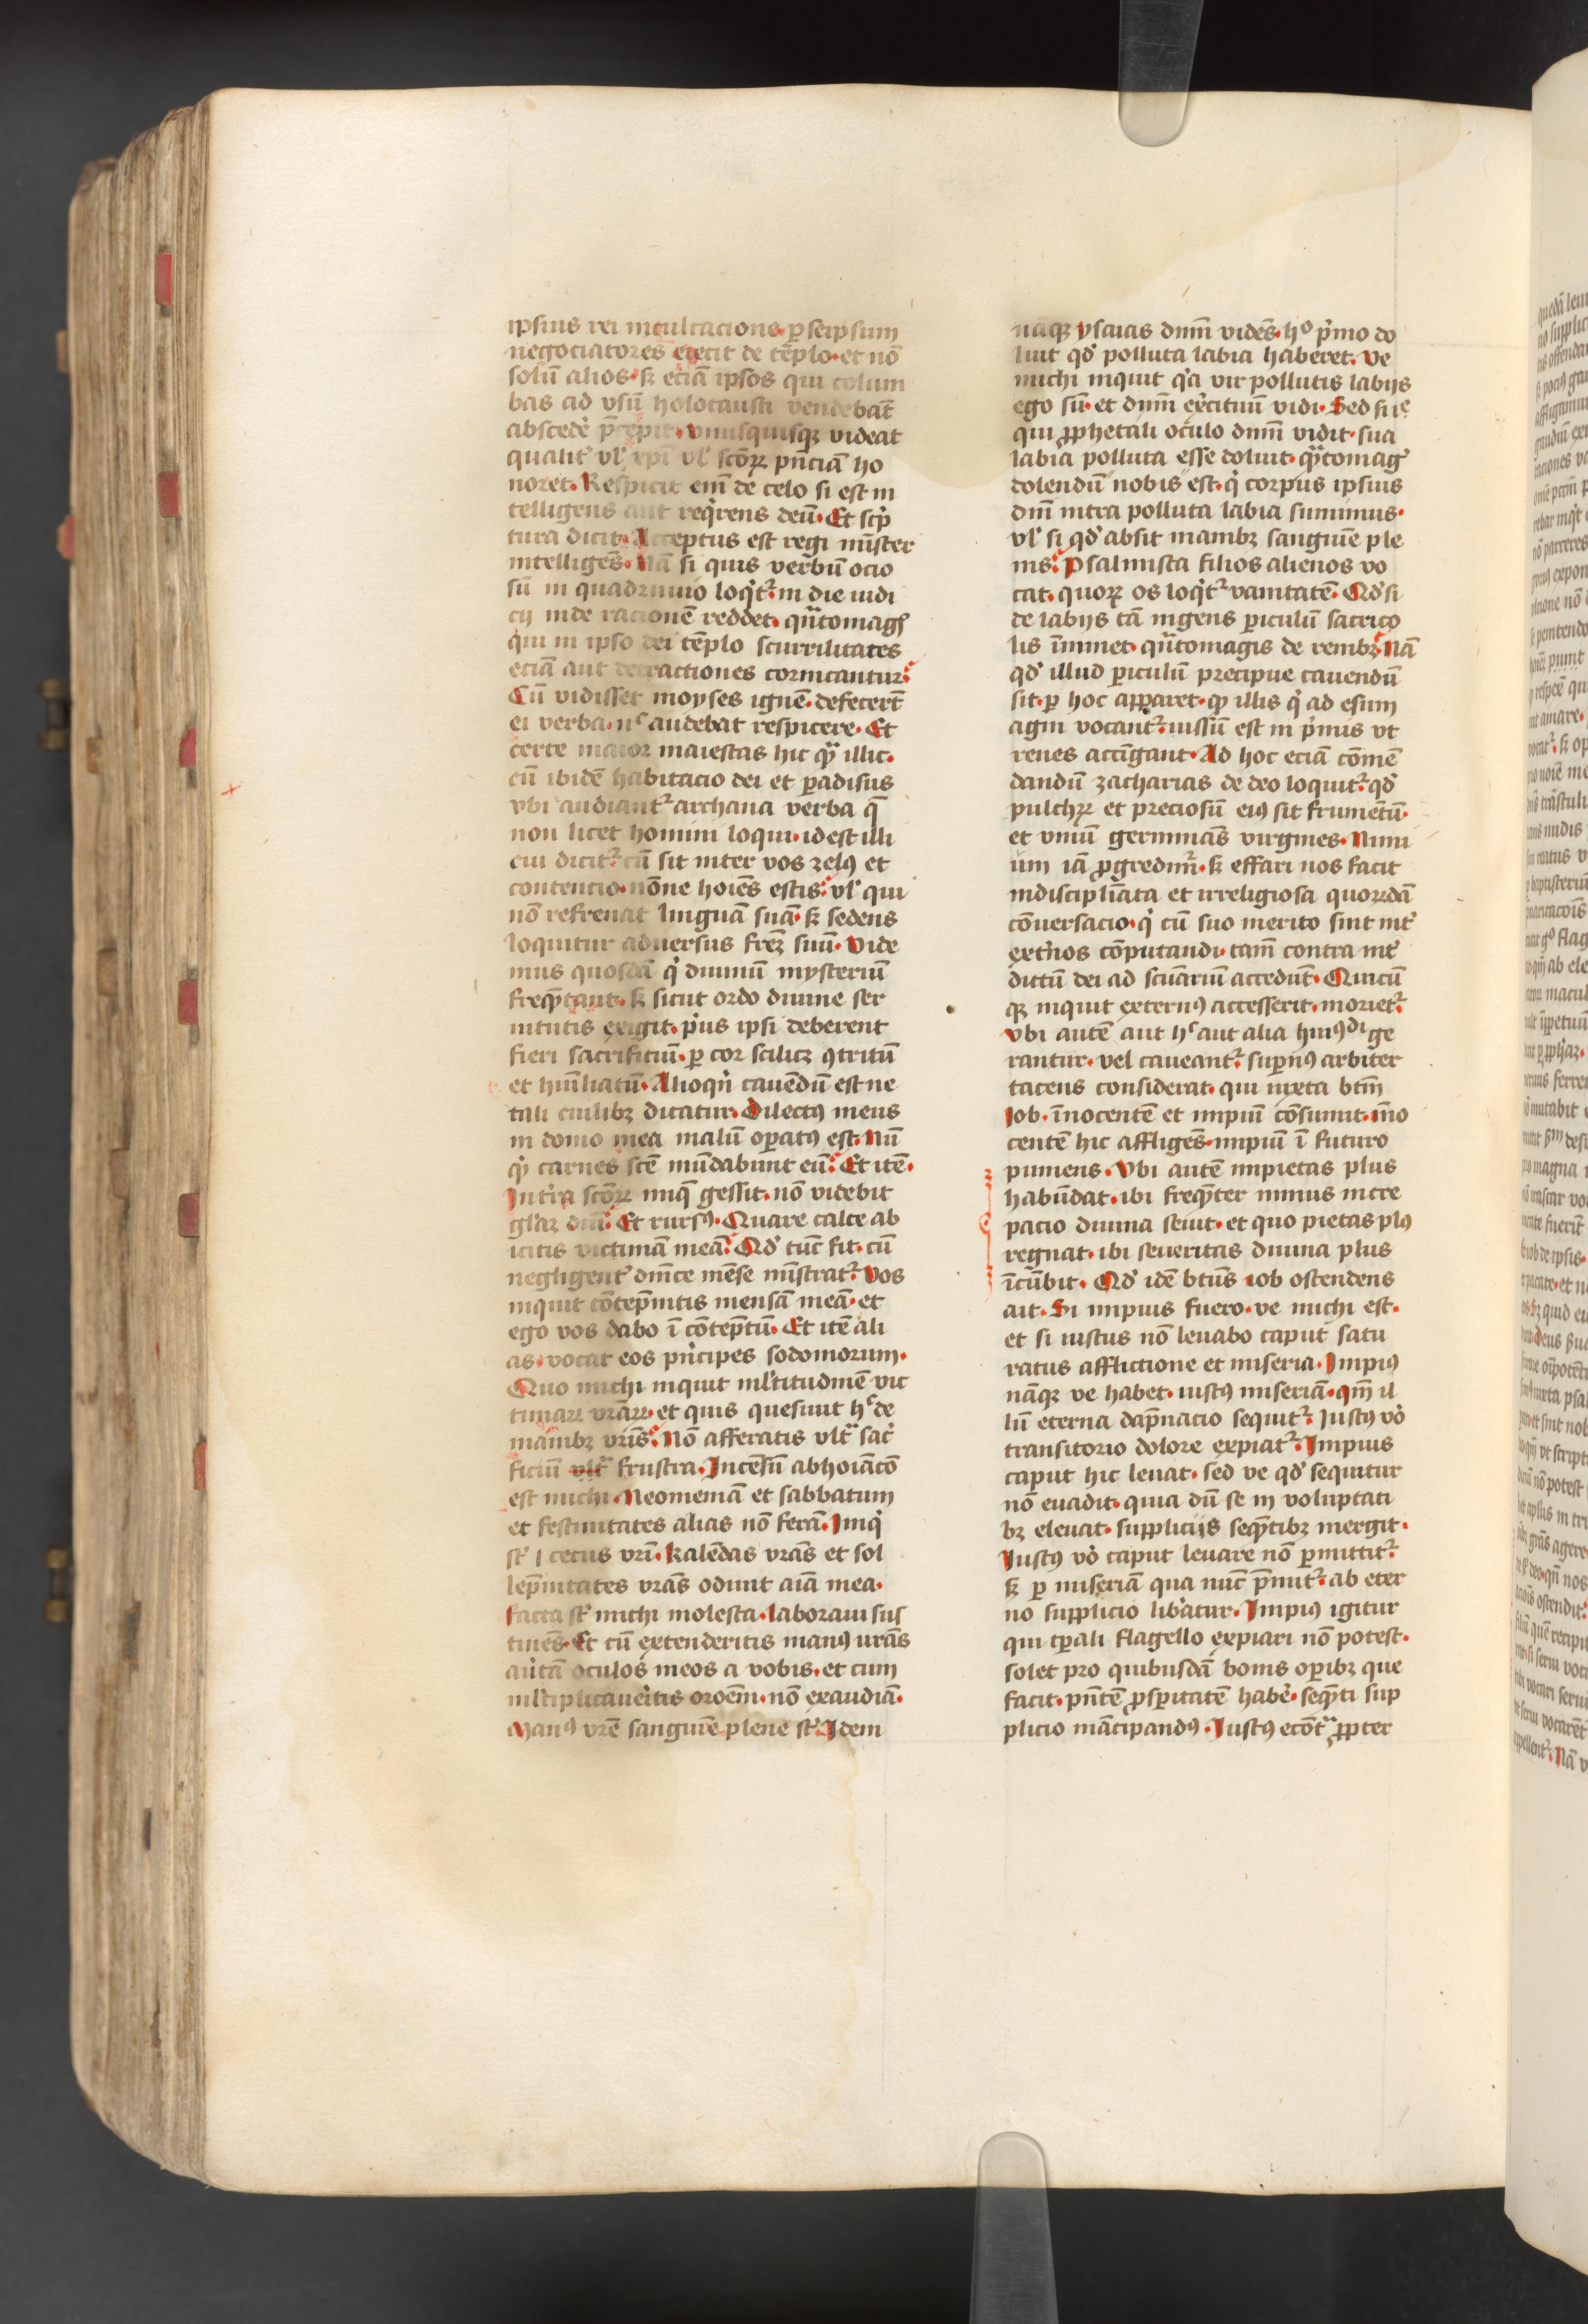 ipsius rei inculcacione· ꝑ seipsum
negociatores eiecit de tēplo· et nō
solū alios· sꝫ eciā ipsos qui colum
bas ad vsū holocausti vendebāt
abscedē p̄cepit· Vnusquisqꝫ videat
qualit᷑ vl᷑ xp̄i vl᷑ scōꝝ pn̄ciā ho
noret· Respicit em̄ de celo si est in
telligens aut req̇rens deū· Et scṗ
tura dicit· Acceptus est regi mīster
intelligēs· Nā si quis verbū ocio
sū in quadriuio loq̇t᷑· in die iudi
cij inde racionē reddet· qͣntomagꝭ
qui in ipso dei tēplo scurrilitates
eciā aut detractiones cornicantur·
Cū vidisset moyses ignē· defecerūt
ei verba· nͨ audebat respicere· Et
certe maior maiestas hic qͣ illic·
cū ibidē habitacio dei et ꝑadisus
vbi audiant᷑ archana verba q̄
non licet homini loqui· id est illi
cui dicit᷑· cū sit inter vos zelꝰ et
contencio· nōne hoīes estis· vl᷑ qui
nō refrenat linguā suā· sꝫ sedens
loquitur aduersus frēꝫ suū· Vide
mus quosdā q̇ diuinū mysteriū
freq̄tant· sꝫ sicut ordo diuine ser
uitutis exigit· pꝰus ipsi deberent
fieri sacrificiū· ꝑ cor scilicꝫ ꝯtritū
et humiliatū· Alioqn̄ cauēdū est ne
tali cuilibꝫ dicatur· Dilectꝰ meus
in domo mea malū oꝑatꝰ est· Nū
qͥ carnes scē mūdabunt eū· Et itē·
Intͣ scōꝝ iniq̄ gessit· nō videbit
gl̄aꝫ dn̄i· Et rursꝰ· Quare calce ab
icitis victimā meā· Qd᷑ tūc fit· cū
negligent᷑ dn̄ice mēse mīstrat᷑· Vos
inquit cōtēpnitis mensā meā· et
ego vos dabo ī cōtēptū· Et itē ali
as· vocat eos pn̄cipes sodomorum·
Quo michi inquit ml᷑titudinē vic
timaꝝ vrāꝝ· et quis quesiuit hͨ de
manibꝫ vrīs· Nō afferatis vltͣ sacͥ
ficiū vltͣ frustra· Incēsū abhoīacō
est michi· Neomeniā et sabbatum
et festiuitates alias nō ferā· Iniq̇
st᷑ cetus vrī· Kalēdas vrās et sol
lēpnitates vrās odiuit aīa mea·
facta st᷑ michi molesta· laboraui sus
tinēs· Et cū extenderitis manꝰ vrās
au̇tā oculos meos a vobis· et cum
ml᷑tiplicaueritis oroēm· nō exaudiā·
Manꝰ vrē sanguīe plene st᷑· Idem
naqꝫ ysaias dn̄m vidēs· hº pͥmo do
luit qd᷑ polluta labia haberet· Ve
michi inquit qͥa vir pollutis labijs
ego sū· et dn̄m exͥcituū vidi· Sed si ie
qui ꝓphetali oculo dn̄m vidit· sua
labia polluta esse doluit· qͣtomagꝭ
dolendū nobis est· q̇ corpus ipsius
dn̄i intra polluta labia sumimus·
vl᷑ si qd᷑ absit manibꝫ sanguīe ple
nis· Psalmista filios alienos vo
cat· quoꝝ os loq̇t᷑ vanitatē· Qd᷑ si
de labijs tā ingens ꝑiculū sacrico
lis īminet· qͣntomagis de renibꝫ· Nā
qd᷑ illud ꝑiculū precipue cauendū
sit· ꝑ hoc apparet· qͥ illis q̇ ad esum
agni vocant᷑· iussū est in pͥmis vt
renes accīgant· Ad hoc eciā cōmē
dandū zacharias de deo loquit᷑· qd᷑
pulchꝝ et preciosū eiꝰ sit frumētū·
et vinū germinās virgines· Nimi
um iā ꝓgredim᷑· sꝫ effari nos facit
indiscipliata et irreligiosa quorūdā
cōuersacio· q̇ cū suo merito sint int᷑
extn̄os cōputandi· tam̄ contra int᷑
dictū dei ad scūariū accedūt· Quicū
qꝫ inquit externꝰ accesserit· moriet᷑·
Vbi autē aut hͨ aut alia huiꝰdi ge
rantur· vel caueant᷑· suꝑnꝰ arbiter
tacens considerat· qui iuxta btm̄
Iob· īnocentē et impiū cōsumit· īno
centē hic affligēs· impiū ī futuro
puniens· Vbi autē impietas plus
habūdat· ibi freq̄ter minus incre
pacio diuina seuit· et quo pietas plꝰ
regnat· ibi seueritas diuina plus
īcūbit· Qd᷑ idē btūs iob ostendens
ait· Si impius fuero· ve michi est·
et si iustus nō leuabo caput satu
ratus afflictione et miseria· Impiꝰ
nāqꝫ ve habet· iustꝰ miseriā· qm̄ il
lū eterna dāpnacio sequit᷑· Iustꝰ vͦ
transitorio dolore expiat᷑· Impius
caput hic leuat· sed ve qd᷑ sequitur
nō euadit· quia dū se in voluptati
bꝫ eleuat· supplicijs seq̄tibꝫ mergit·
Iustꝰ vͦ caput leuare nō ꝑmittit᷑·
sꝫ ꝑ miseriā qua nūc p̄mit᷑· ab eter
no supplicio libͣatur· Impiꝰ igitur
qui tꝑali flagello expiari nō potest·
solet pro quibusdā bonis oꝑibꝫ que
facit· pn̄tē ꝓsꝑitatē habē· seq̄ti sup
plicio mācipandꝰ· Iustꝰ ecōtͣ ꝓpter